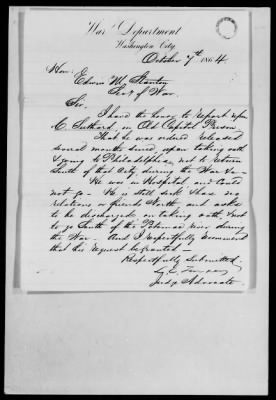 War Department
Washington City,
October 7th 1864
Hon: E
Edwin M. Stanton
Sect of War.
Sir.
I have the honor to report upon
C. Suthard, in Old Capitol Prison
That he was ordered released
several months since, upon taking oath
& going to Philadelphia, not to return
South of that City during the War &c
He was in Hospital and could
not go. He is still sick & has no
relations or friends North and asks
to be discharged on taking oath, & not
to go South of the Potomac river during
the War. And I respectfully recommend
that his request be granted
Respectfully Submitted.
Judge Advocate.